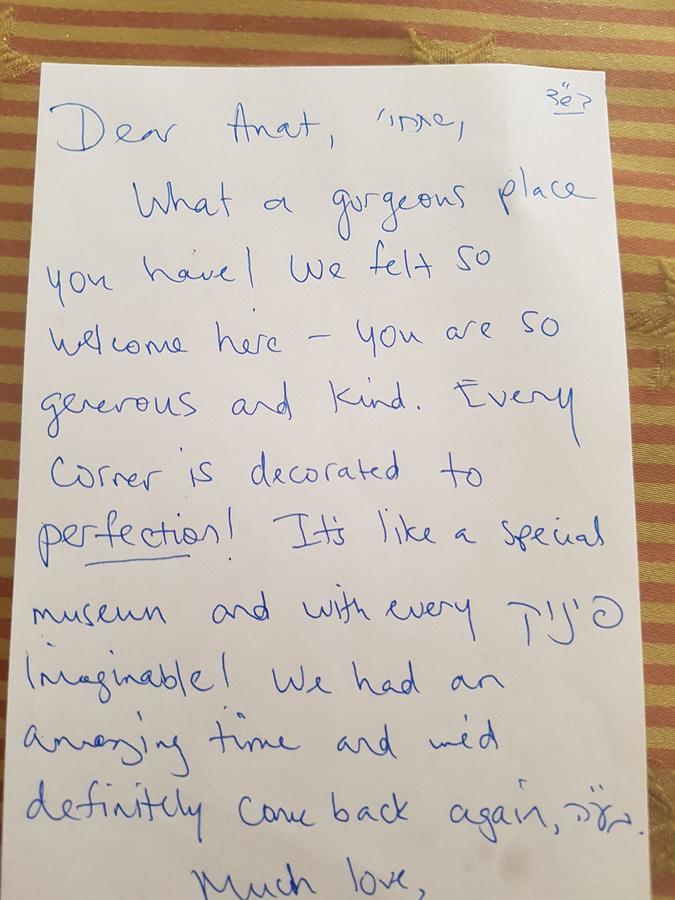 בס"ד
Dear Anat,
What a gorgeous place
you have! We felt so
welcome here – you are so
generous and kind. Every
corner is decorated to
perfection! It's like a special
museum and with every פינוק
imaginable! We had an
amazing time and we'd
definitely come back again, בע"ה.
Much love,